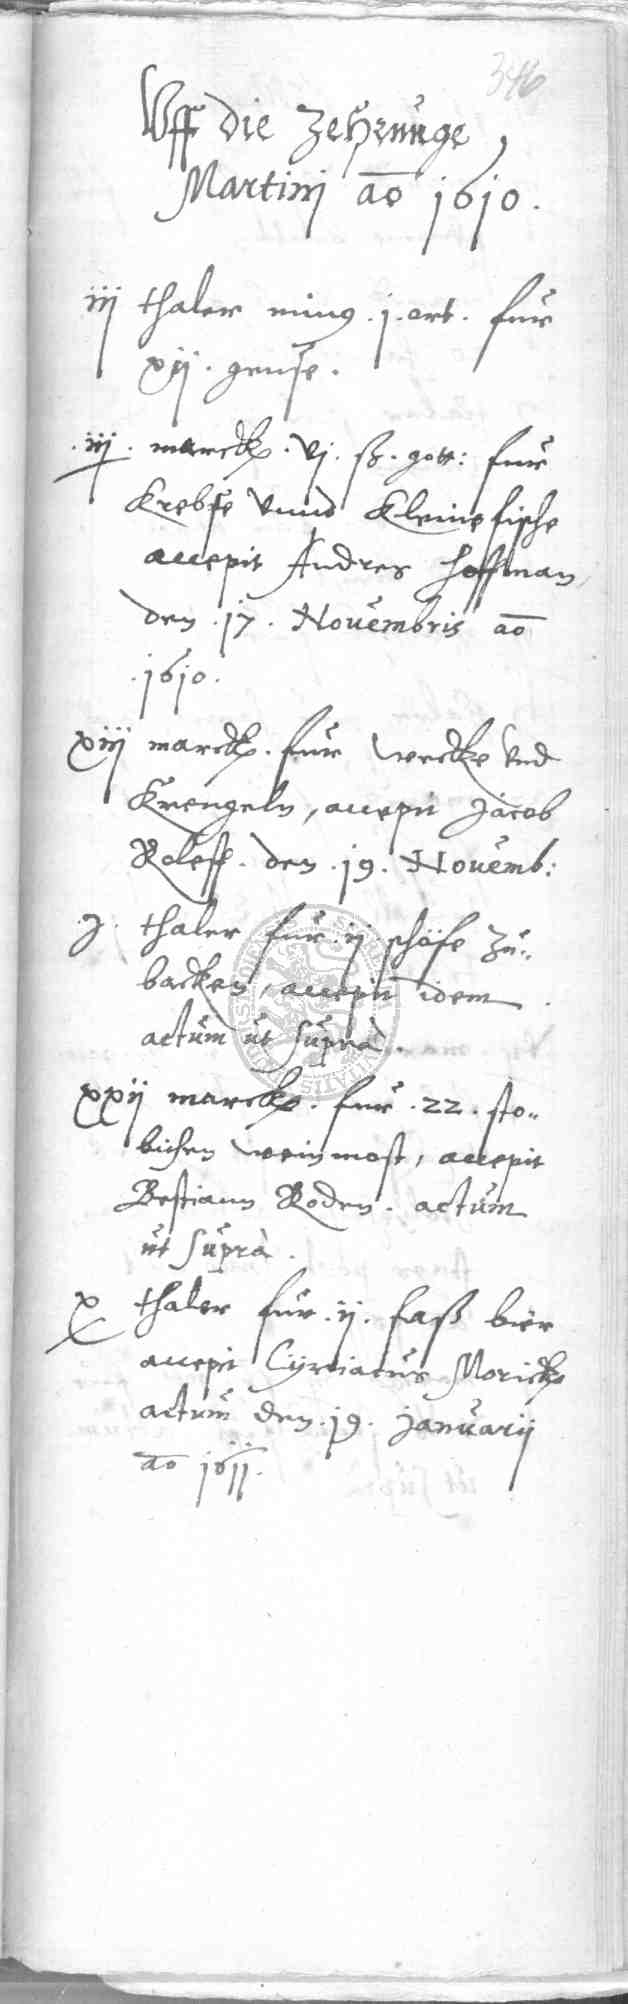 346
Uff die Zehrunge
Martini ao 1610.
iij thaler minus .j. ort. fur
xij. gense.
.iij. marck. vj. ß. gott: fur
Krebse vnnd Kleine fische
accepit Andres Hoffman,
den .17. Nouembris ao
.1610.
xiij marck. fur wecke vnd
Krengeln, accepit Jacob
Roleff. den .19. Nouemb:
.j. thaler fur .ij. schöfe zu..
backen, accepit idem
actum ut supra.
xxij marck. fur .22. sto..
bichen weinmost, accepit
Bestiann Roden. actum
ut suprà.
x thaler fur .ij. faß bier
accepit Cyriacus Morick
actum den .19. januarij
ao 1611.